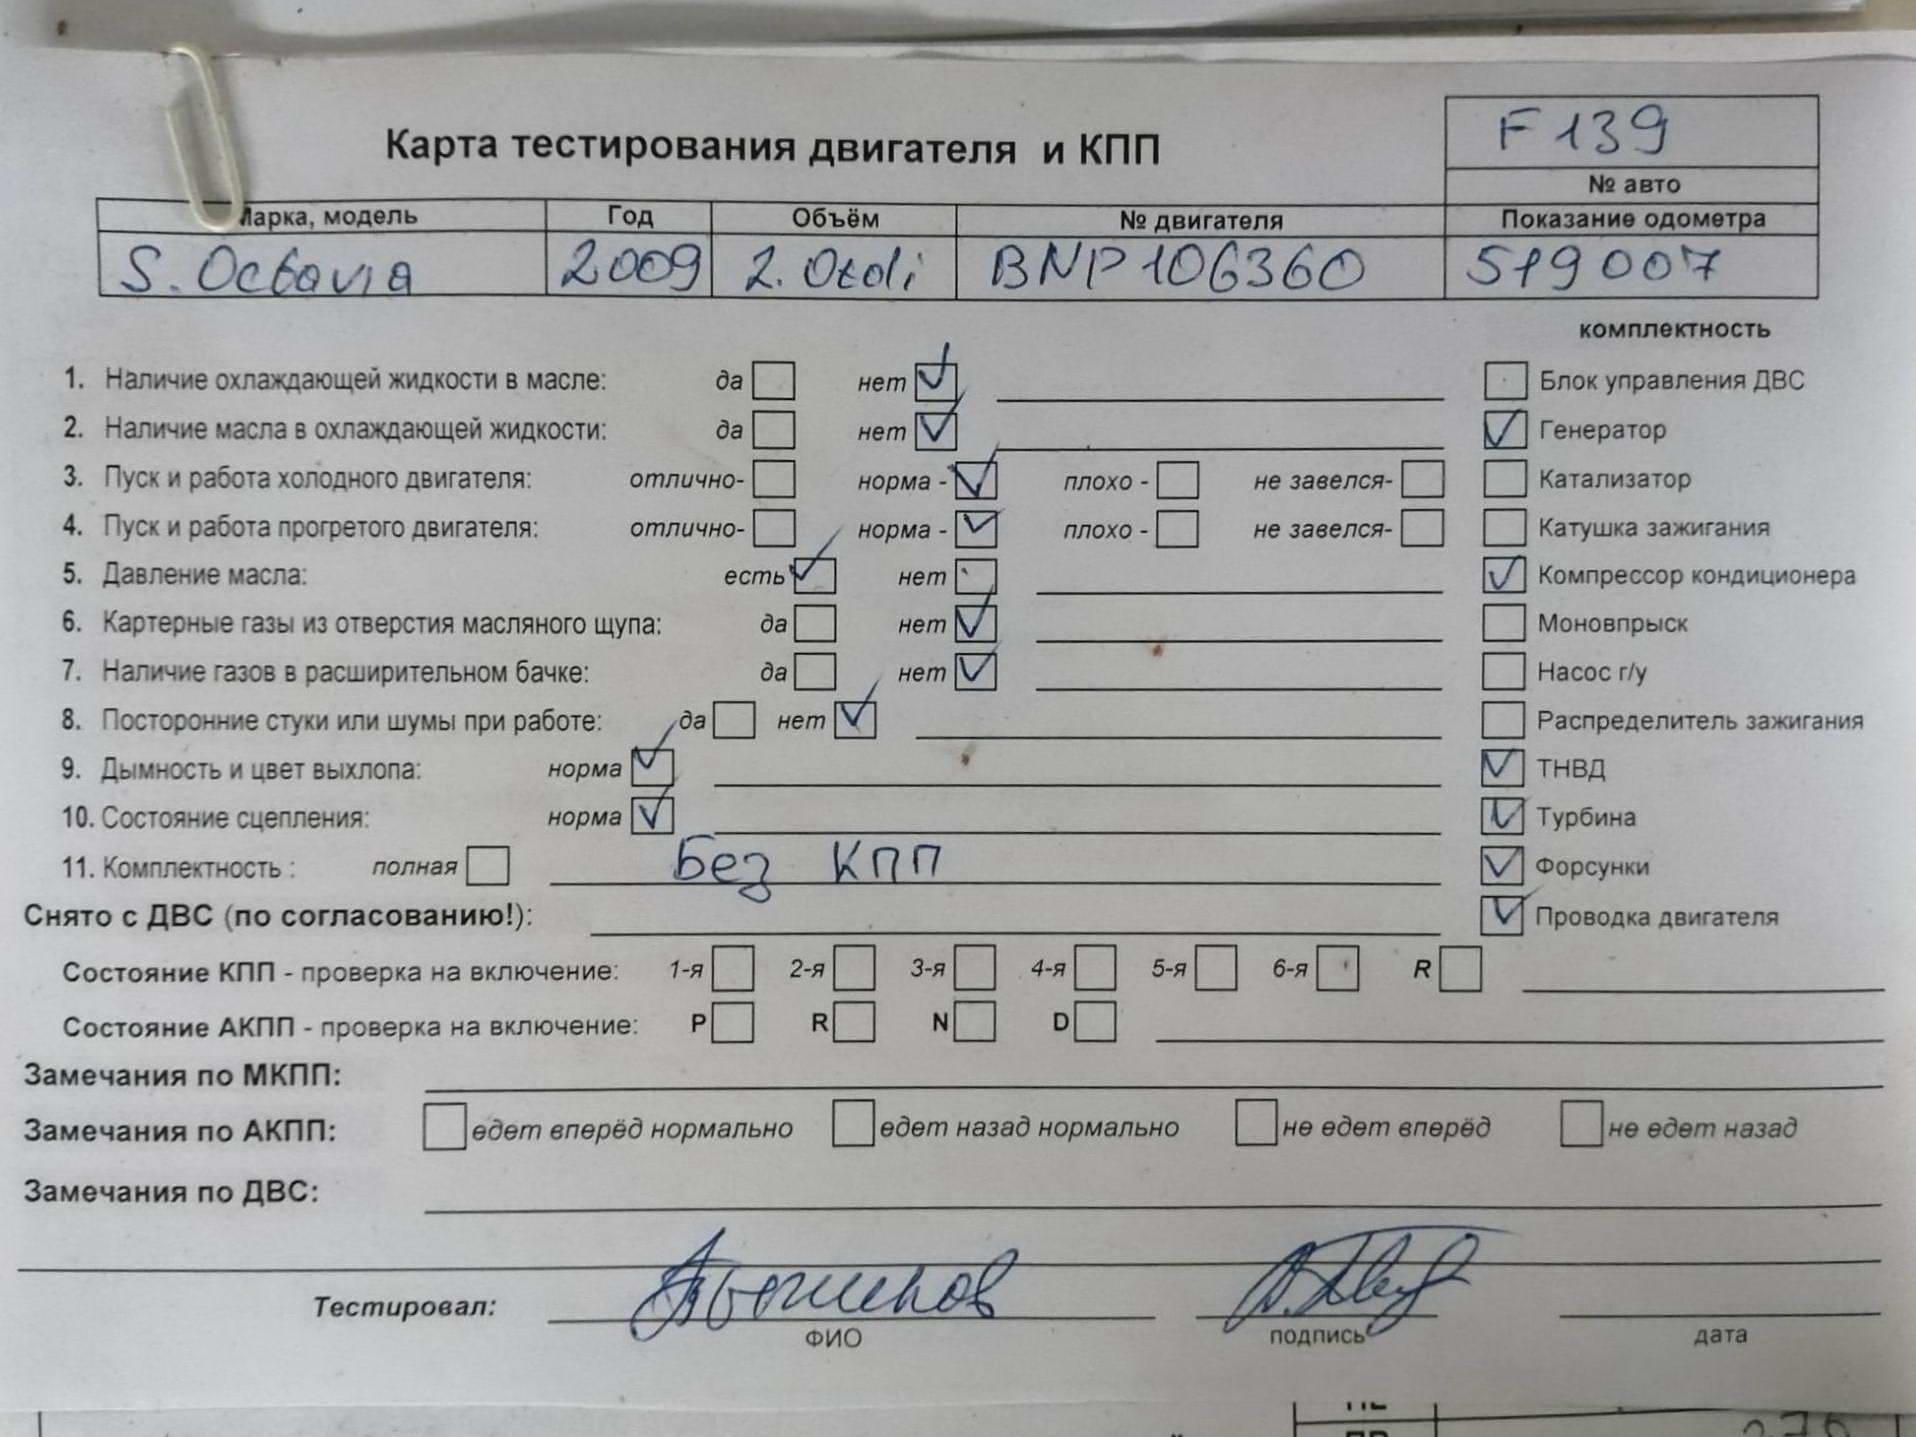 F139
Карта тестирования двигателя и КПП
№ авто
Марка, модель Год Объём № двигателя Показание одометра
S. Octavia 2009 2.0tdi BNP106360 519007
комплектность
1. Наличие охлаждающей жидкости в масле: да нет Блок управления ДВС
2. Наличие масла в охлаждающей жидкости: да нет Генератор
3. Пуск и работа холодного двигателя: отлично- норма - плохо - не завелся- Катализатор
4. Пуск и работа прогретого двигателя: отлично- норма - плохо - не завелся- Катушка зажигания
5. Давление масла: есть нет Компрессор кондиционера
6. Картерные газы из отверстия масляного щупа: да нет Моновпрыск
7. Наличие газов в расширительном бачке: да нет Насос г/у
8. Посторонние стуки или шумы при работе: да нет Распределитель зажигания
9. Дымность и цвет выхлопа: норма ТНВД
10. Состояние сцепления: норма Турбина
11. Комплектность : полная Без КПП Форсунки
Снято с ДВС (по согласованию!): Проводка двигателя
Состояние КПП - проверка на включение: 1-я 2-я 3-я 4-я 5-я 6-я R
Состояние АКПП - проверка на включение: P R N D
Замечания по МКПП:
Замечания по АКПП: едет вперёд нормально едет назад нормально не едет вперёд не едет назад
Замечания по ДВС:
Тестировал:
ФИО подпись дата